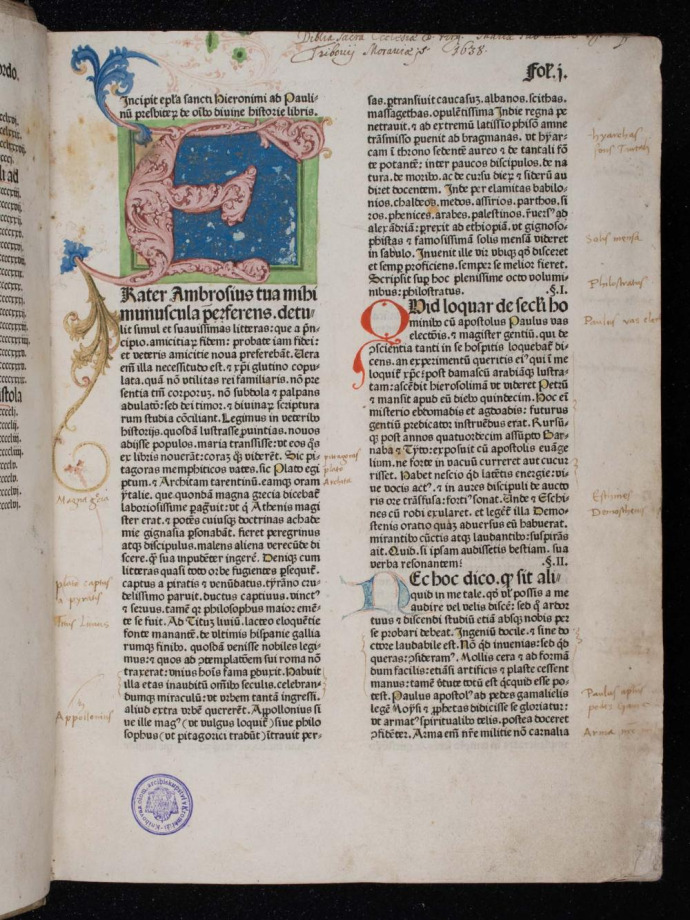 Biblia Sacra
Tribovij Moraviæ 1638.
Fol. j.
Incipit epl'a sancti Hieronimi ad Pauli-
nū presbiteꝝ de oībꝰ divine historie libris.
Frater Ambrosius tua mihi
munuscula perferens. detu-
lit simul et suavissimas litteras: que a prin-
cipio. amicitiaꝝ fidem: probate iam fidei:
et veteris amicitie nova preferebāt. Uera
em̄ illa necessitudo est. ⁊ xp̄i glutino copu-
lata. quā nō utilitas rei familiaris. nō pre
sentia tm̄ corporuꝫ. nō subdola ⁊ palpans
adulatō: sed dei timor. ⁊ divinaꝝ scriptura
rum studia cōciliant. Legimus in veterib
historijs. quosdā lustrasse ꝓuintias. nouos
adijsse populos. maria transisse: vt eos ꝗs
ex libris nouerāt: coraꝫ ꝗꝫ viderēt. Sic pi-
tagoras memphiticos vates. sic Plato egi
ptum. ⁊ Architam tarentinū. eamqꝫ oram
ytalie. que quondā magna grecia dicebat̄
laboriosissime ꝑagᷓuit: vt ꝗ Athenis magi
ster erat. ⁊ potēs. cuiusqꝫ doctrinas achade
mie gignasia ꝑsonabāt. fieret peregrinus
atqꝫ discipulus. malens aliena verecūde di
scere. ꝙ̄ sua inpudēter ingerē. Deniqꝫ cum
litteras quasi toto orbe fugientes ꝑsequit̄.
captus a piratis ⁊ venūdatus. tyrāno cru-
delissimo paruit. ductus captiuus. vinctꝰ
⁊ seruus. tamē qꝛ philosophus maior emē-
te se fuit. Ad Titū liuiū. lacteo eloquētie
fonte manantē. de vltimis hispanie gallia
rumqꝫ finibꝰ. quosdā venisse nobiles legi-
mus: ⁊ quos ad ꝯtemplatōem sui roma nō
traxerat: vnius hoīs fama ꝑduxit. Habuit
illa etas inauditū oībus seculis. celebran-
dumqꝫ miraculū: vt vrbem tantā ingressi.
aliud extra vrbē quererēt. Appollonius si
ue ille magꝰ (vt vulgus loquit̄) siue philo
sophus (vt pitagorici tradūt) ītrauit per-
sas. ꝑtransiuit caucasuꝫ. albanos. scithas.
massagethas. opulētissima Indie regna pe
netrauit. ⁊ ad extremū latissīo phisō amne
trāsmisso ꝑuenit ad bragmanas. vt hyar-
cam ī throno sedentē aureo ⁊ de tantali fō
te potantē: inter paucos discipulos. de na
tura. de moribꝰ. ac de cursu dierꝝ ⁊ siderū au
diret docentem. Inde per elamitas babilo-
nios. chaldeos. medos. assirios. parthos. si
ros. phenices. arabes. palestinos. r̄uersꝰ ad
alexādriā: prexit ad ethiopiā. vt gignoso-
phistas ⁊ famosissimā solis mensā videret
in sabulo. Inuenit ille vir vbiqꝫ qd̄ disceret
et semꝑ proficiens. semper se melior fieret.
Scripsit suꝑ hoc plenissime octo volumi-
nibus: philostratus. .§.I.
Quid loquar de seculi ho
minibꝰ cū apostolus Paulus vas
electōis. ⁊ magister gentiū. qui de
ꝯscientia tanti in se hospitis loquebat̄ di-
cens. an experimentū queritis eiꝰ qui ī me
loquit̄ xp̄c: post damascū arabiāqꝫ lustra-
tam: ascēdit hierosolimā vt videret Petrū
⁊ mansit apud eū diebꝰ quindecim. Hoc em̄
misterio ebdomadis ⁊ ogdoadis: futurus
gentiū predicator instruēdus erat. Rursūqꝫ
post annos quatuordecim assūpto Bar-
naba ⁊ Tyto: exposuit cū apostolis euāge
lium. ne forte in vacuū curreret aut cucur
risset. Habet nescio qd̄ latētis energie: vi-
ue vocis actꝰ. ⁊ in aures discipuli de aucto
ris ore trāsfusa: fortiꝰ sonat. Unde ⁊ Eschi-
nes cū rodi exularet. et legeret̄ illa Demo-
stenis oratio quaꝫ aduersus eū habuerat.
mirantibꝰ cūctis atqꝫ laudantibꝰ: suspirās
ait. Quid. si ipsam audissetis bestiam. sua
verba resonantem? .§.II.
Nec hoc dico. ꝙ sit ali-
quid in me tale. qd̄ vl' possis a me
audire vel velis discē: sed ꝙ ardor
tuus ⁊ discendi studiū etiā absqꝫ nobis per
se probari debeat. Ingeniū docile. ⁊ sine do
ctore laudabile est. Nō qd̄ inuenias: sed qd̄
queras: ꝯsideramꝰ. Mollis cera ⁊ ad formā
dum facilis: etiāsi artificis ⁊ plaste cessent
manus: tamē dtute totū est qcquid esse po-
test. Paulus apostolꝰ ad pedes gamalielis
legē Moysi ⁊ ꝓphetas didicisse se gloriatur:
vt armatꝰ spiritualibꝰ telis. postea doceret
ꝯfidēter. Arma em̄ nr̄e militie nō carnalia
Solis mensa
Philostratus
Paulus vas elect
Eschines
Demosthenes
Arma
pitagoras
plato
Archita
Magna grecia
plato captus
a pyratis
Titus Livius
Appollonius